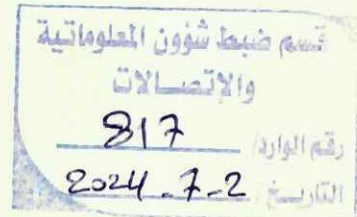 قسم ضبط شؤون المعلوماتية
والإتصالات
رقم الوارد/ 817
التاريخ/ 2024-7-2